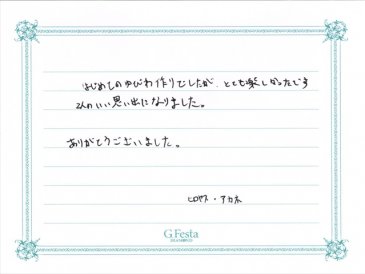 はじめてのゆびわ作りでしたが、とても楽しかったです
2人のいい思い出になりました。
ありがとうございました。
ヒロヤス・アカネ
G.Festa